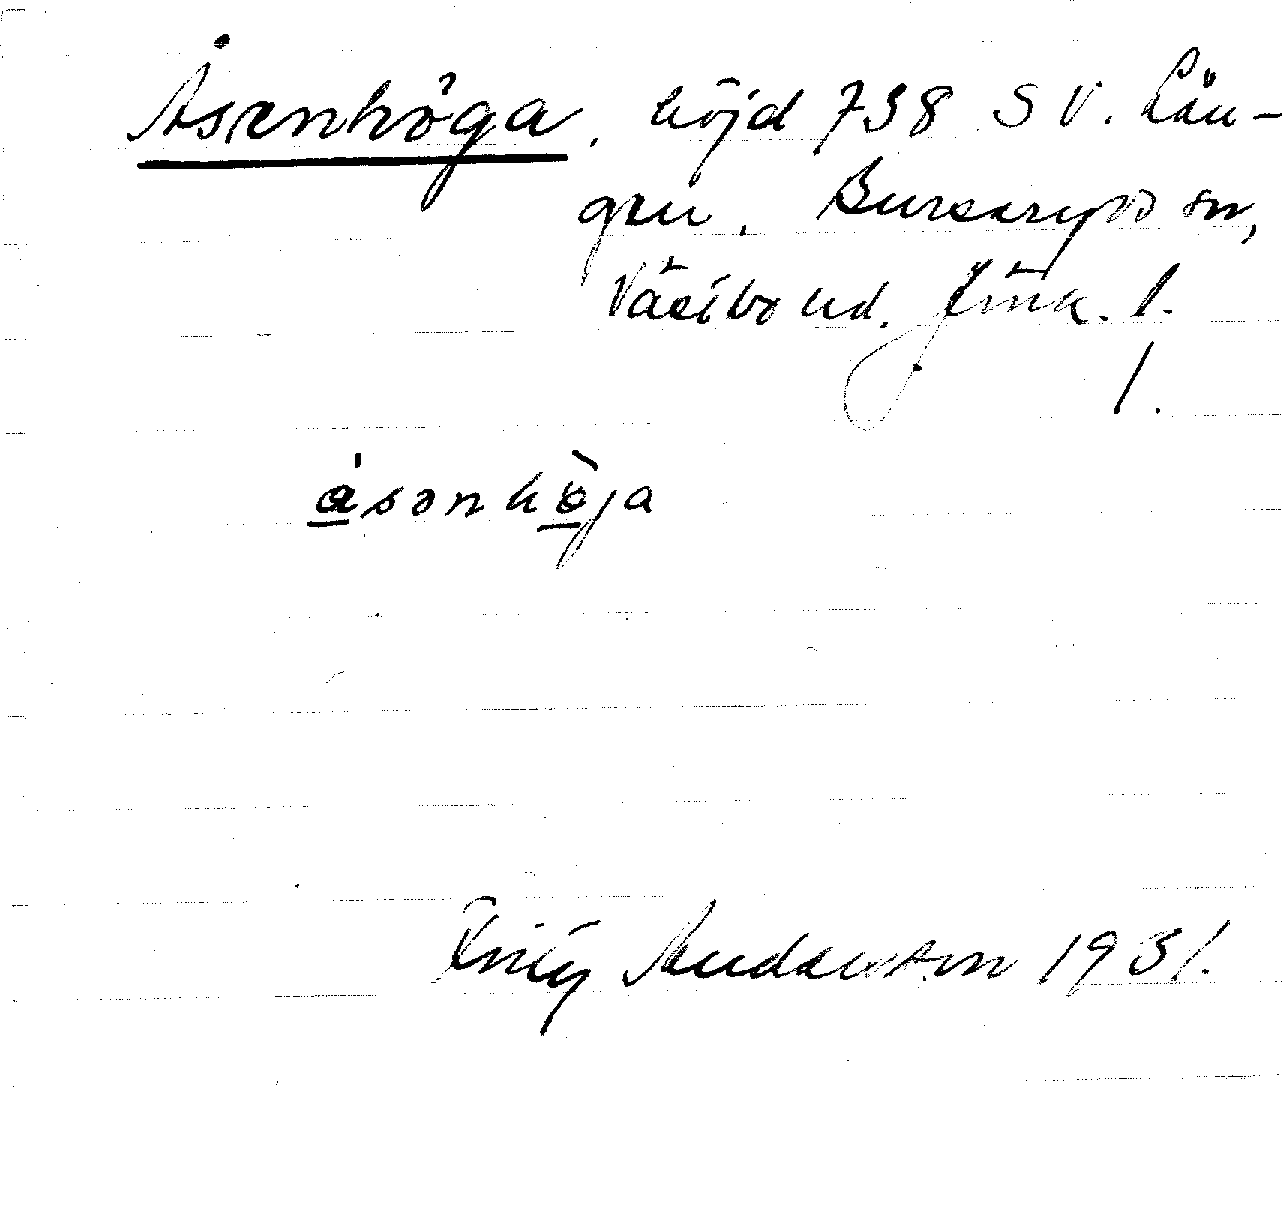 Åsenhöga, höjd 738 SV. Lån-
gen. Burseryds sn,
Västbo hd. Jönk. l.
1.
åsənhöja
Andersson 1931.